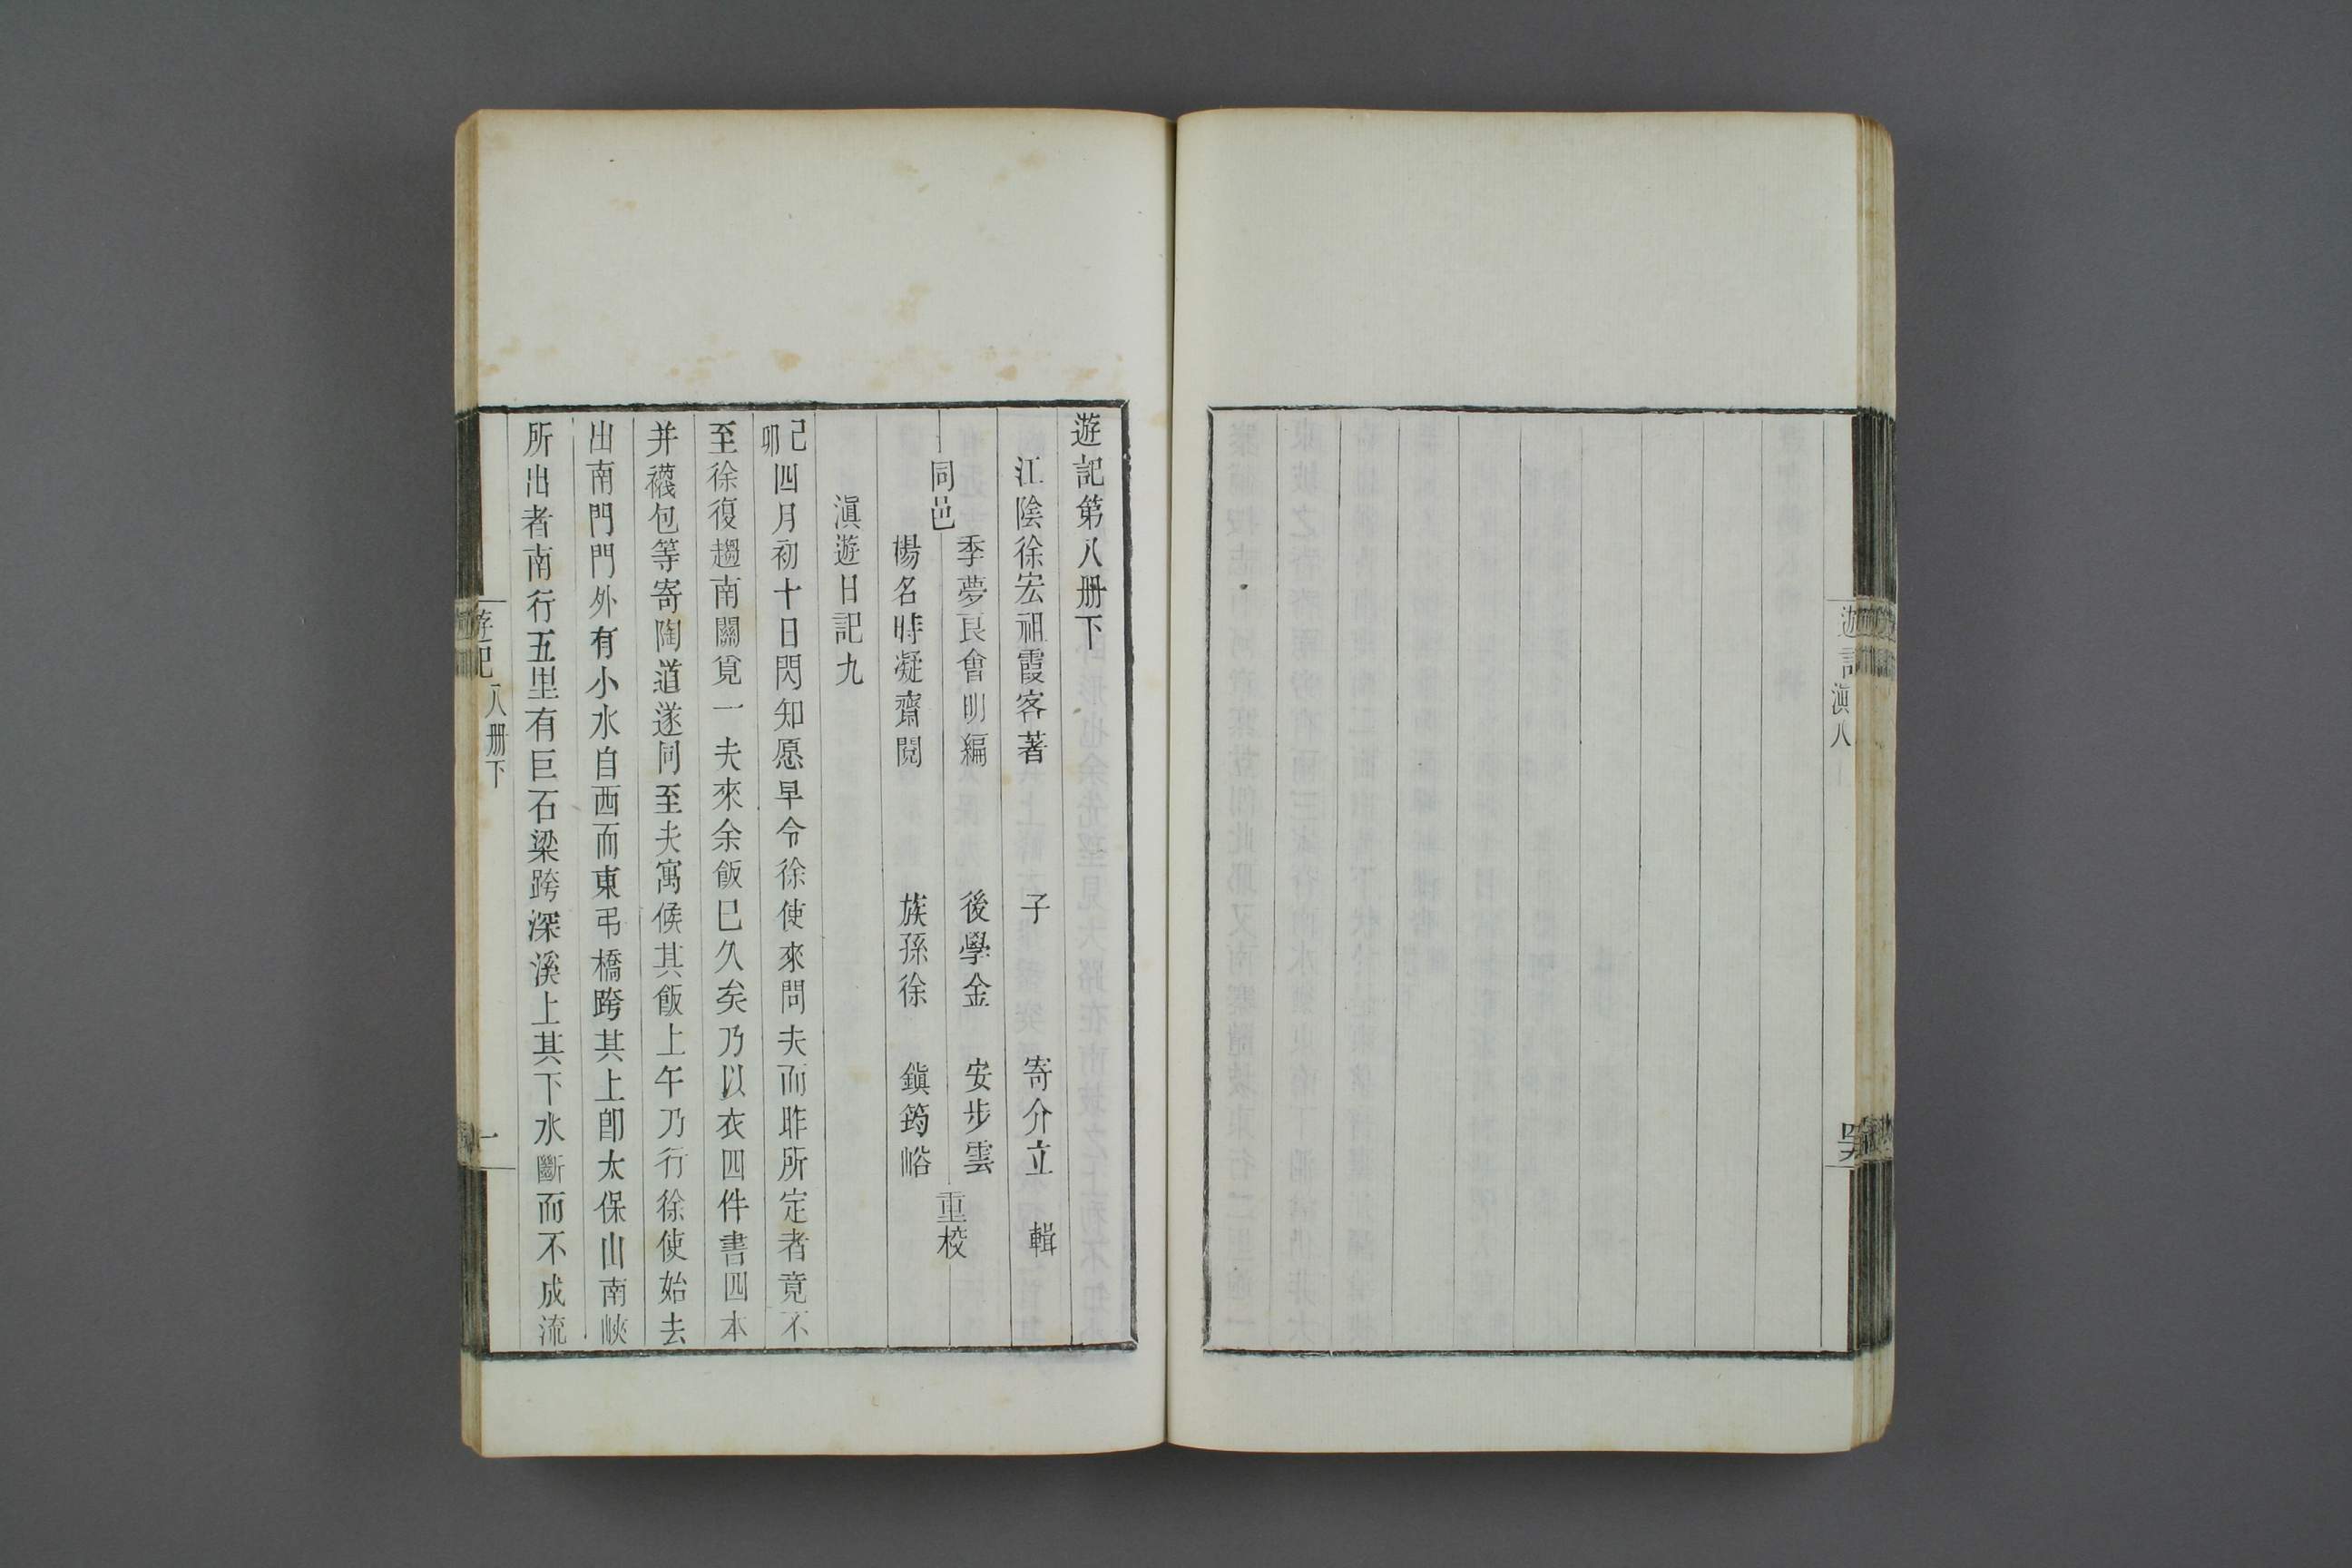 遊記
滇八
遊記第八册下
江陰徐宏祖霞客著　子　寄介立　輯
同邑
季夢良會明編　後學金　安步雲
楊名時凝齋閱　族孫徐　鎭筠峪
重校
滇遊日記九
己卯四月初十日閃知愿早令徐使來問夫而昨所定者竟不
至徐復趨南關覓一夫來余飯巳久矣乃以衣四件書四本
并襪包等寄陶道遂同至夫寓候其飯上午乃行徐使始去
出南門門外有小水自西而東弔橋跨其上卽太保山南峽
所出者南行五里有巨石梁跨深溪上其下水斷而不成流
游記
八册下
一